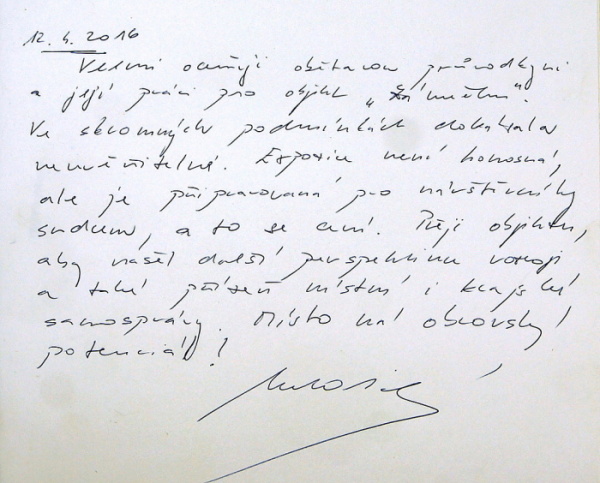 12. 4. 2016
Velmi oceňuji obětavou průvodkyni
a její práci pro objekt „Zámeček".
Ve skromných podmínkách dokázala
neuvěřitelné. Expozice není honosná,
ale je připravovaná pro návštěvníky
srdcem, a to se cení. Přeji objektu,
aby našel další perspektivu rozvoji
a také přízeň místní i krajské
samosprávy. Místo má obrovský
potenciál!